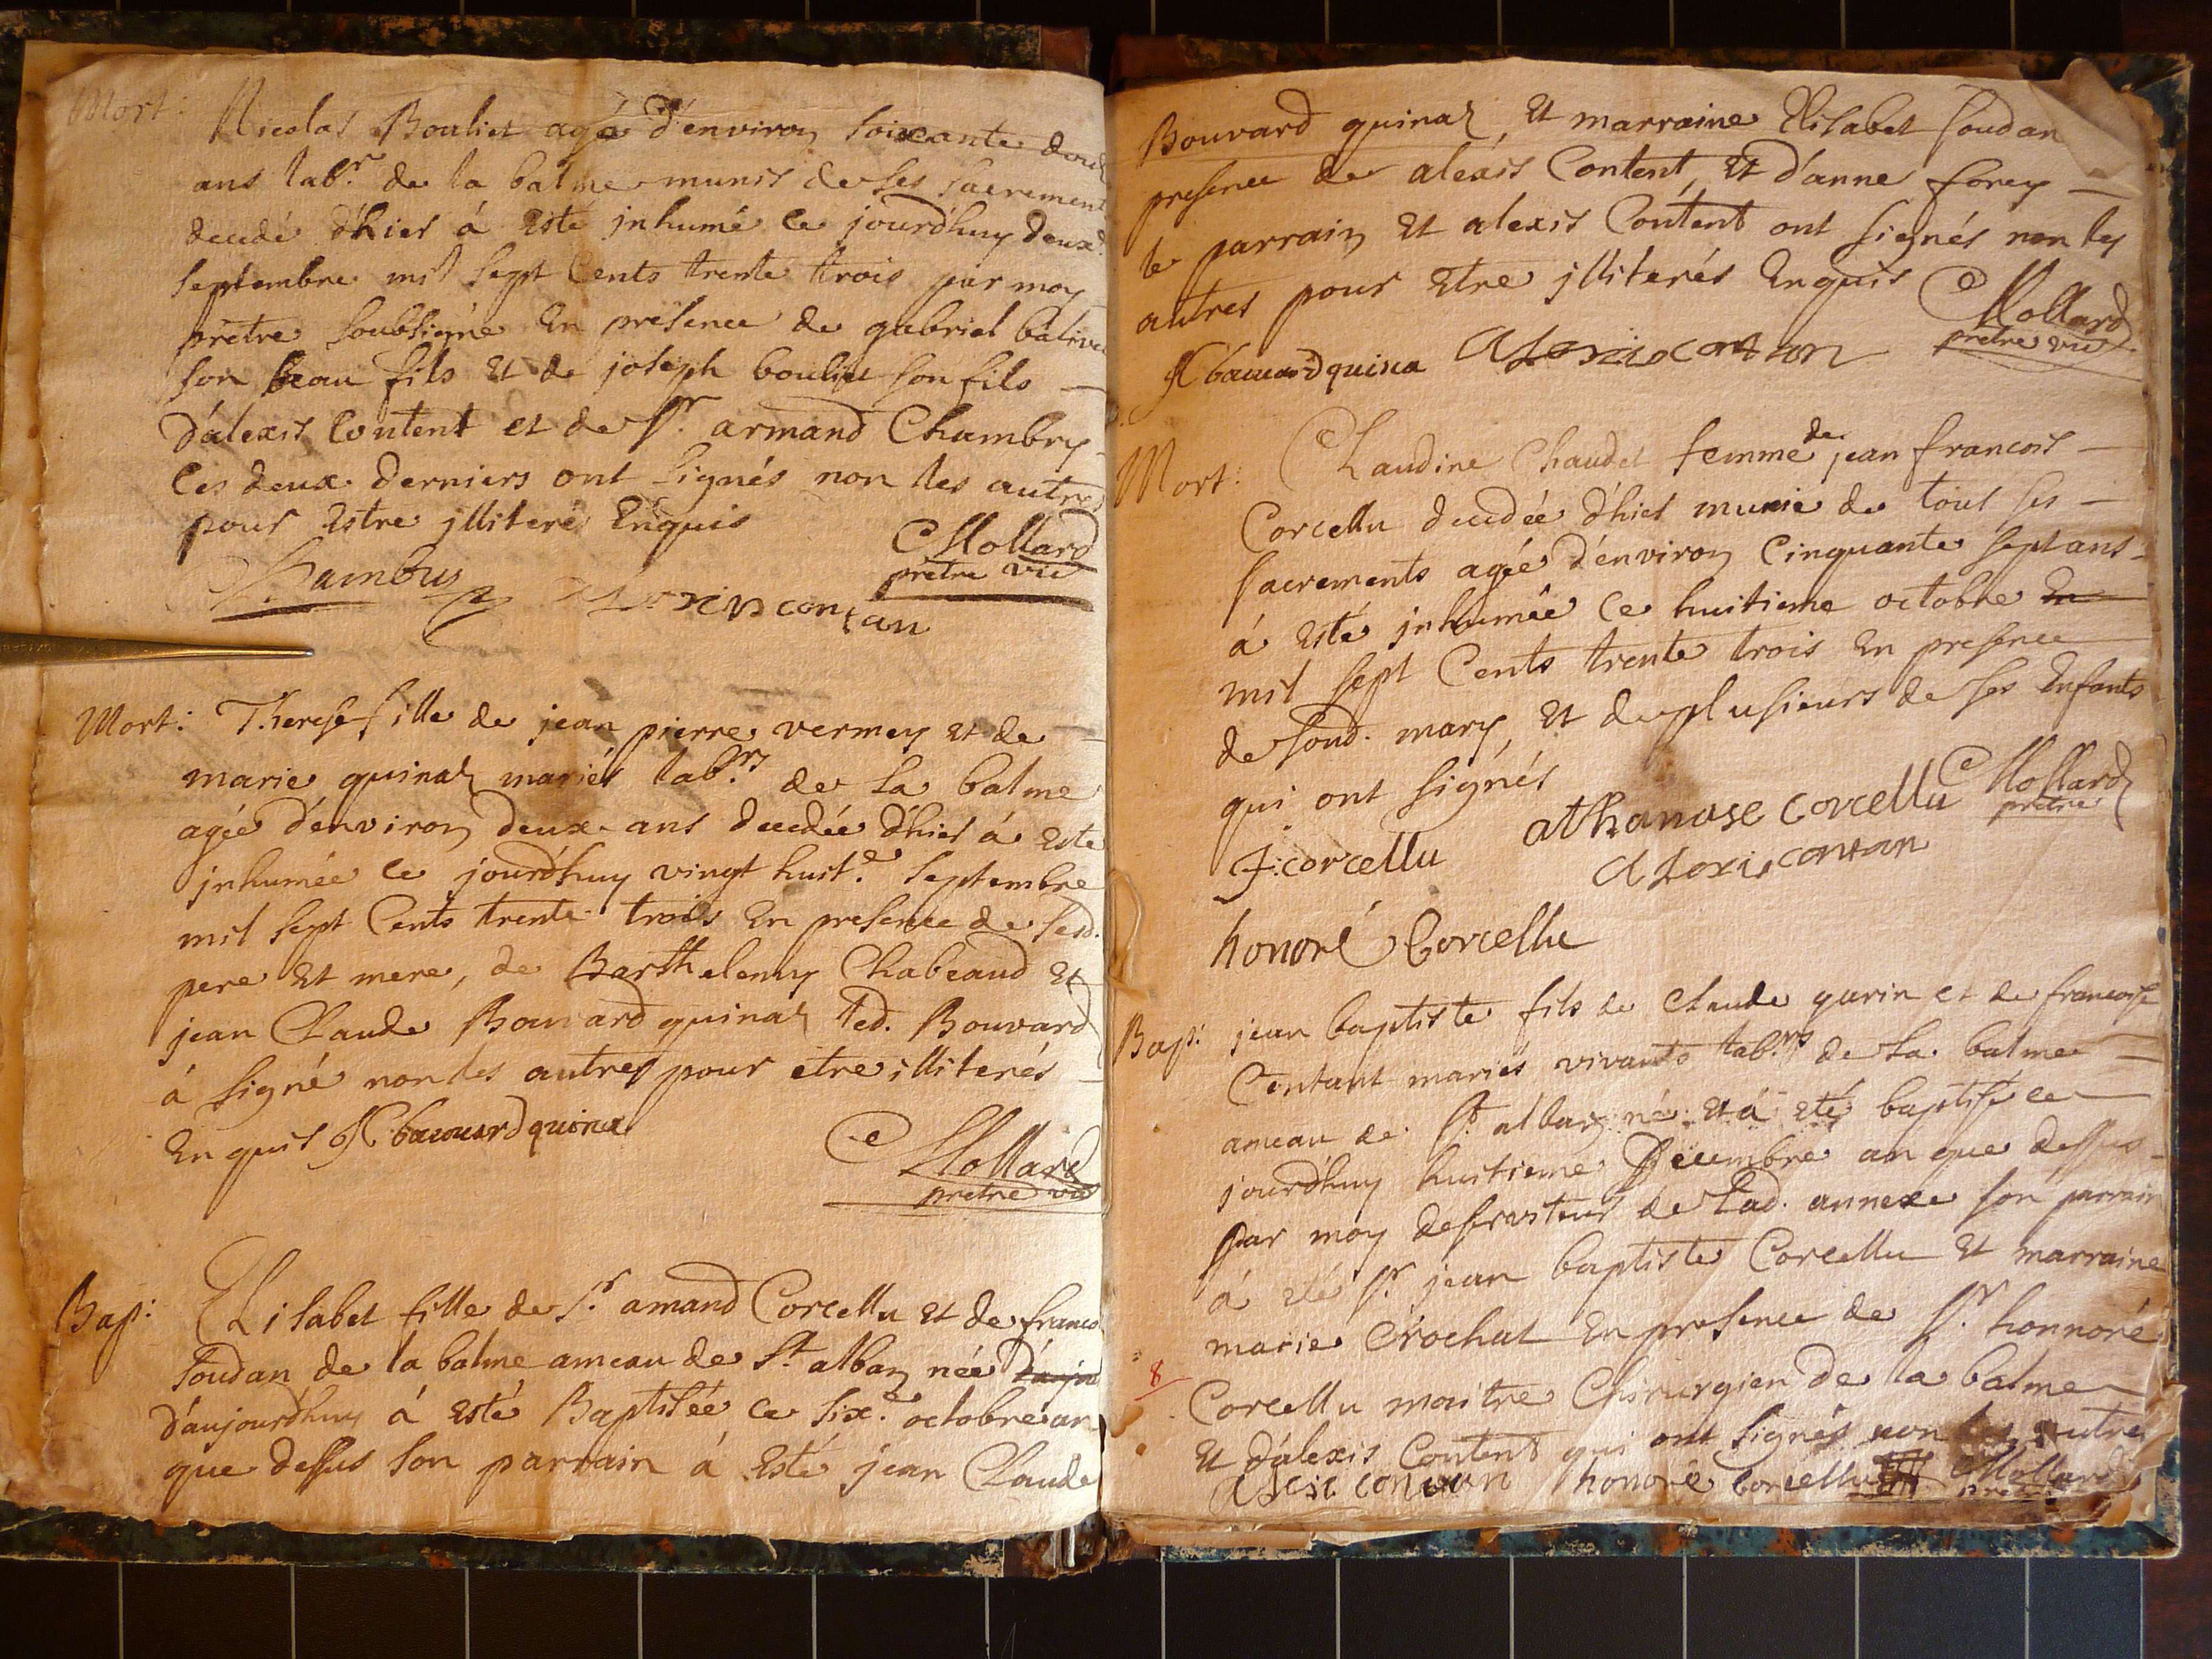 Mort: Nicolas Bouliet agé d'environ soixante
ans lab.r de la balme munis de ses sacrement
decedé d'hier á esté jnhumé ce jourd'huy deux.e
septembre mil sept Cents trente trois par moy
prêtre soubsigné En présence de gabriel
son beau fils Et de joseph bouliet son fils —
d'alexis Content et de Sr. armand Chambry
Ces deux derniers ont signés non les autres
pour Estre jlliterés Enquis
Chambry Mollard
prêtre vic
alexis contan
Mort: Therese fille de jean pierre vermey Et de —
marie quinaz mariés lab.rs de La balme
agée d'environ deux ans decedée d'hier á Esté
jnhumée ce jourd'huy vingt huit.e Septembre
mil sept Cents trente trois En presence de sesd.
pere Et mere, de Barthelemy Chabeaud Et
jean Claude Bouvard quinaz led. Bouvard
á signé non les autres pour etre illiterés —
Enquis bauuard quina
Mollard
prêtre vic
Bap: Elisabet fille de Sr. amand Corcellu Et de
Soudan de la balme ameau de St. alban née
d'aujourd'huy á esté Baptisée ce six.e octobre an
que dessus son parrain á Esté jean Claude
Bouvard quinaz, Et marraine Elisabet Soudan
presence de alexis Content, Et d'anne forey —
le parrain Et alexis Content ont signés non les
autres pour Etre jlliterés Enquis Mollard
prêtre vic
bauuard quina Alexis contan
Mort: Claudine Chaudet femme de jean francois —
Corcellu decedée d'hier munie de tous ses —
sacrements agée d'environ Cinquante sept ans —
á Esté jnhumée ce huitieme octobre En
mil sept Cents trente trois En presence
de sond. mary, Et de plusieurs de ses Enfants
qui ont signés Mollard
prêtre
F: corcellu athanase corcellu
Alexis contan
honoré Corcellu
Bap: jean baptiste fils de Claude garin et de francoise
Contant mariés vivants lab.rs de La balme —
ameau de St. alban né Et á eté baptisé ce —
jourd'huy huitieme Decembre an que dessus —
par moy desserviteur de Lad. annexe son parrain
á eté Sr. jean baptiste Corcellu Et marraine
marie Crochat En presence de Sr. honnoré
8
Corcellu maitre Chirurgien de la balme —
Et d'alexis Content qui ont signés non les autres
Alexis contan honoré Corcellu Mollard
prêtre